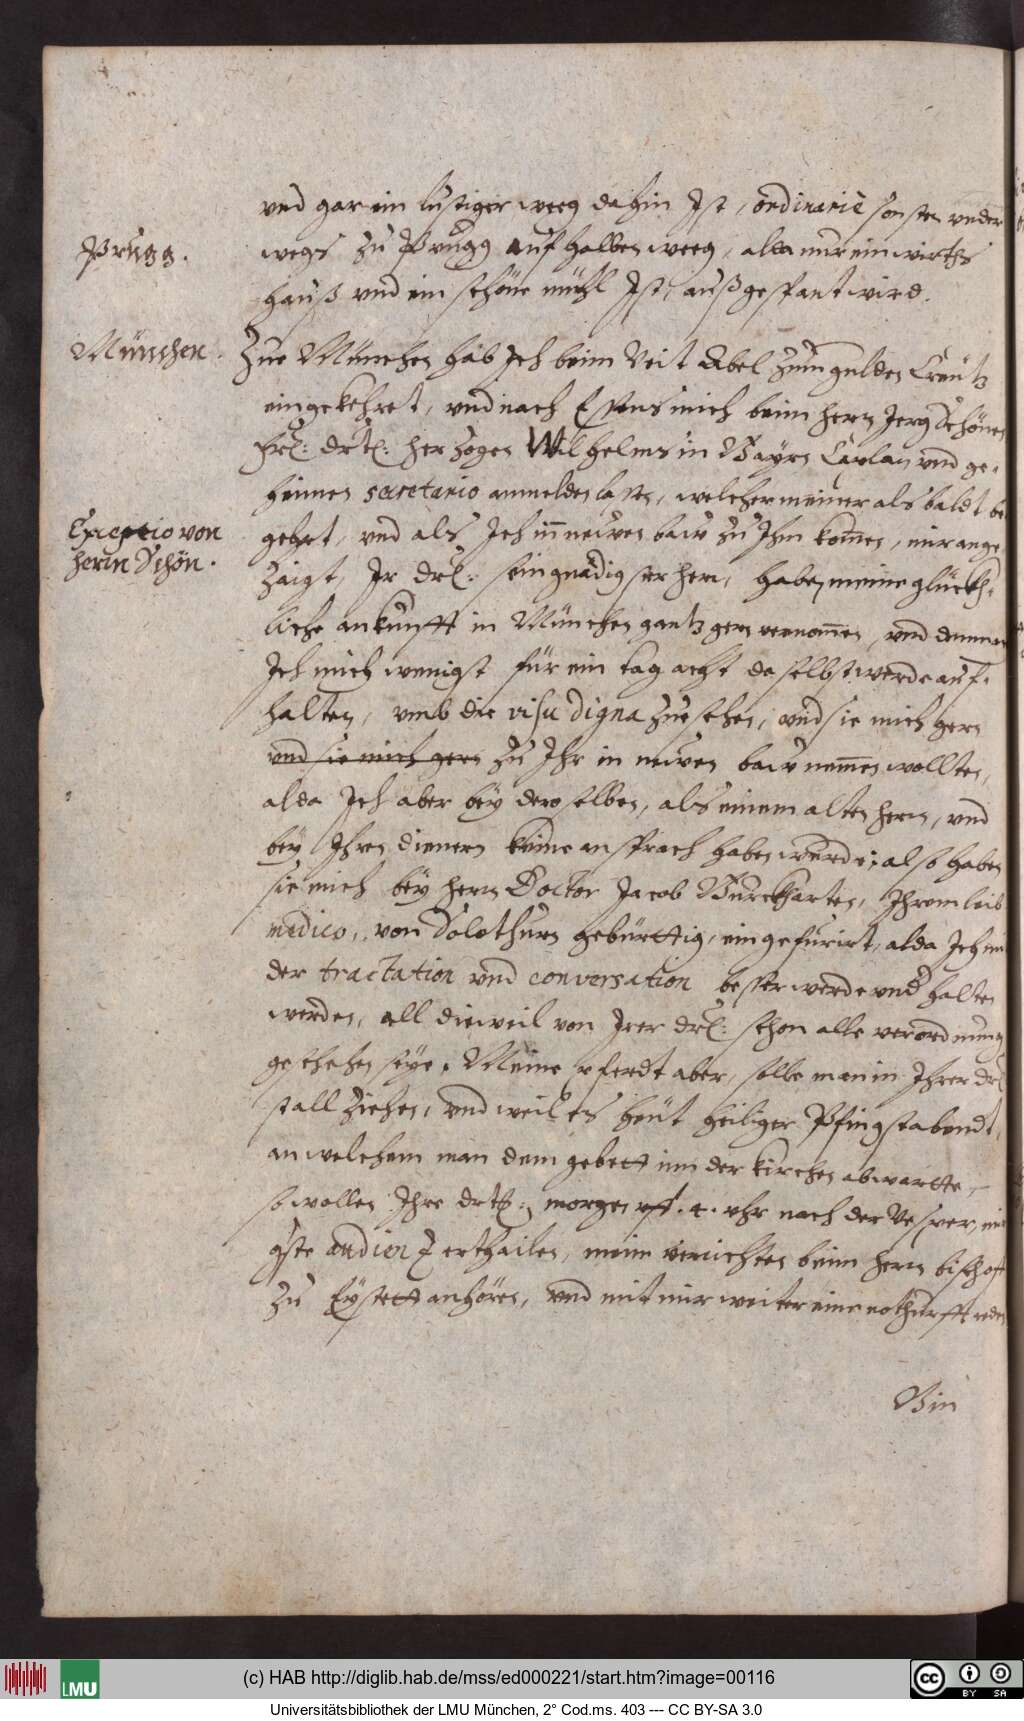 vnd gar ein lustiger weeg dahin Ist, ordinariè sonsten vnder
Prugg.
wegs zu Prugg auf halben weeg, alda nur ein wirths
hauß vnd ein schöne mühl Ist, außgespant wird.
München.
Zue München hab Ich beim Veit Abel zum gulden Creütz
eingekehret, vnd nach Essens mich beim herrn Jerg Schönen
Frl: drtl: herzogen Wilhelms in Bayrn Caplan vnd ge-
heimen secretario anmelden lassen, welcher meiner als baldt be
Exceptio von
herrn Schön.
gehrt, vnd als Ich in neuen baw zu Ihm kommen, mir ange
zaigt, Ir drl: sein gnädigster herr, haben meine glückh-
liche ankunfft in München gantz gern vernommen, vnd demnach
Ich mich wenigst für ein tag acht daselbst werde auf-
halten, vmb die visu digna zue sehen, vnd sie mich gern
vnd sie mich gern zu Ihr in neuen baw nemmen wollten,
alda Ich aber beÿ dero selben, als einem alten herrn, vnd
beÿ Ihren dienern keine ansprach haben wurde; also haben
sie mich beÿ herrn Doctor Jacob Burckharten, Ihrem leib
medico, von Solothurn gebürttig, ein gefurirt, alda Ich mit
der tractation vnd conversation besser werde vnd halten
werden, all dieweil von Irer drl: schon alle verordnung
geschehen seÿe. Meine pferdt aber, solle man in Ihrer drl
stall ziehen, vnd weil es heüt heiliger Pfingstabendt,
an welchem man dem gebett inn der kirchen abwartte,
so wollen Ihre drtl: morgen vff .4. vhr nach der Vesper, mir
gste audienz erthailen, mein verrichten beim herrn bischoff
zu Eÿstett anhören, vnd mit mir weiter eine nothurfft reden
Bin
(c) HAB http://diglib.hab.de/mss/ed000221/start.htm?image=00116
LMU
CC BY SA
Universitätsbibliothek der LMU München, 2° Cod.ms. 403 --- CC BY-SA 3.0